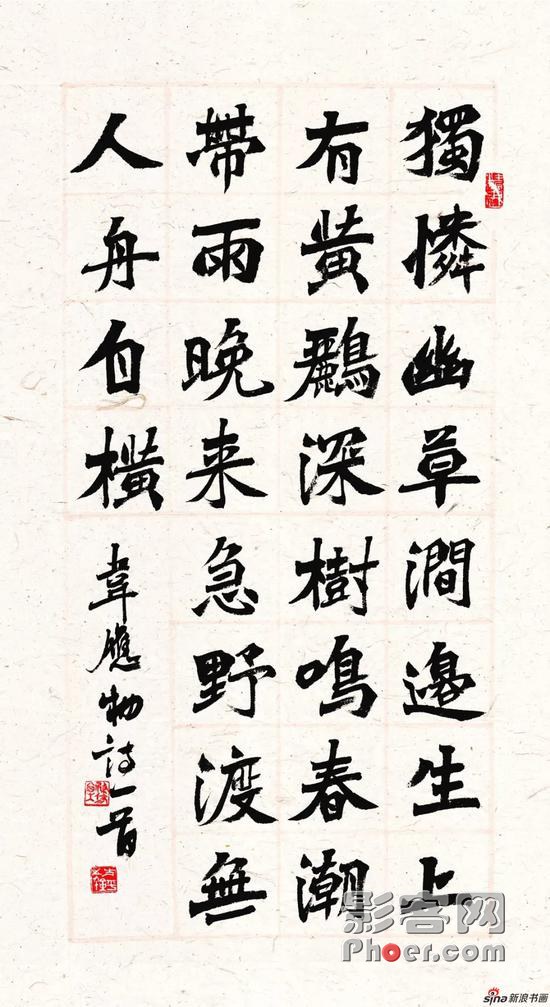 獨憐幽草澗邊生上
有黃鸝深樹鳴春潮
帶雨晚来急野渡無
人舟自橫
韋應物詩一首
影客网
Phoer.com
sina新浪书画